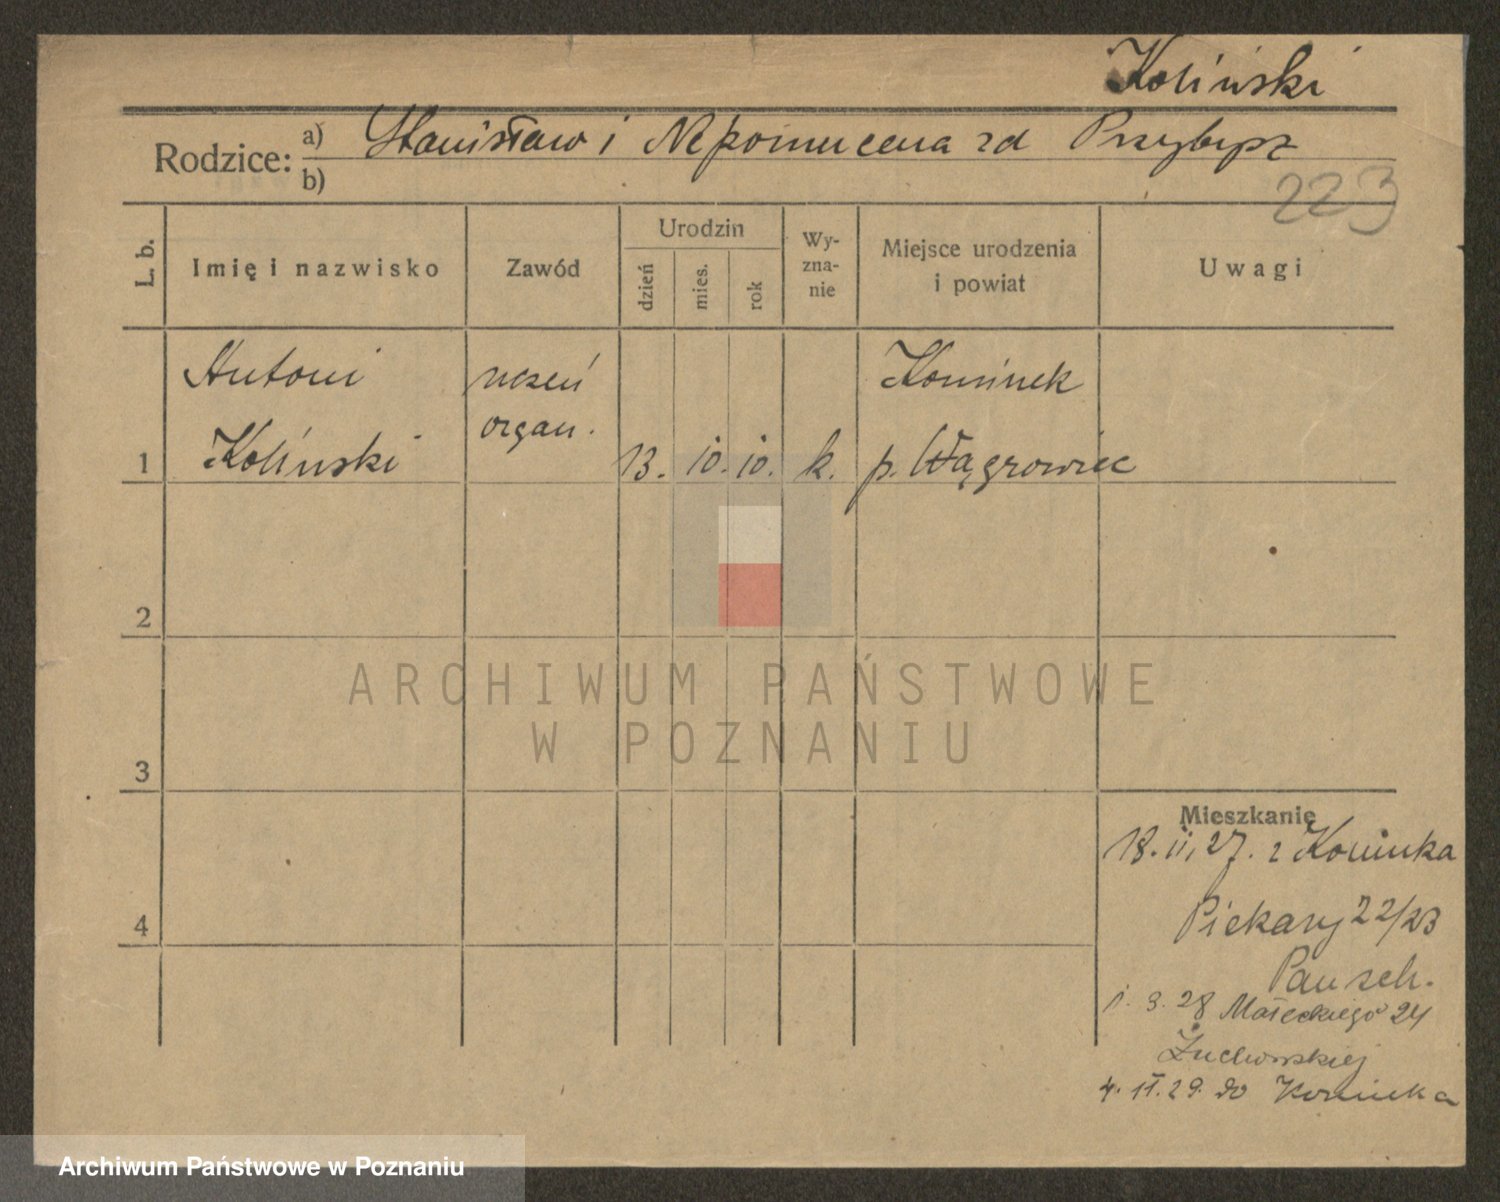 Koliński
Rodzice: a) Stanisław i Nepomucena zd Przybysz
b)
223
L. b.
Imię i nazwisko
Zawód
Urodzin
dzień
mies.
rok
Wy-
zna-
nie
Miejsce urodzenia
i powiat
Uwagi
Antoni uczeń Kominek
organ.
1 Koliński 13. 10. 10. k. p. Wągrowiec
2
ARCHIWUM PAŃSTWOWE
W POZNANIU
3
Mieszkanie
18. 11, 27. z Kominka
4
Piekary 22/23
Pausch.
1. 3. 28 Małeckiego 24
Żuchowskiej
4. 11. 29. do Kominka
Archiwum Państwowe w Poznaniu